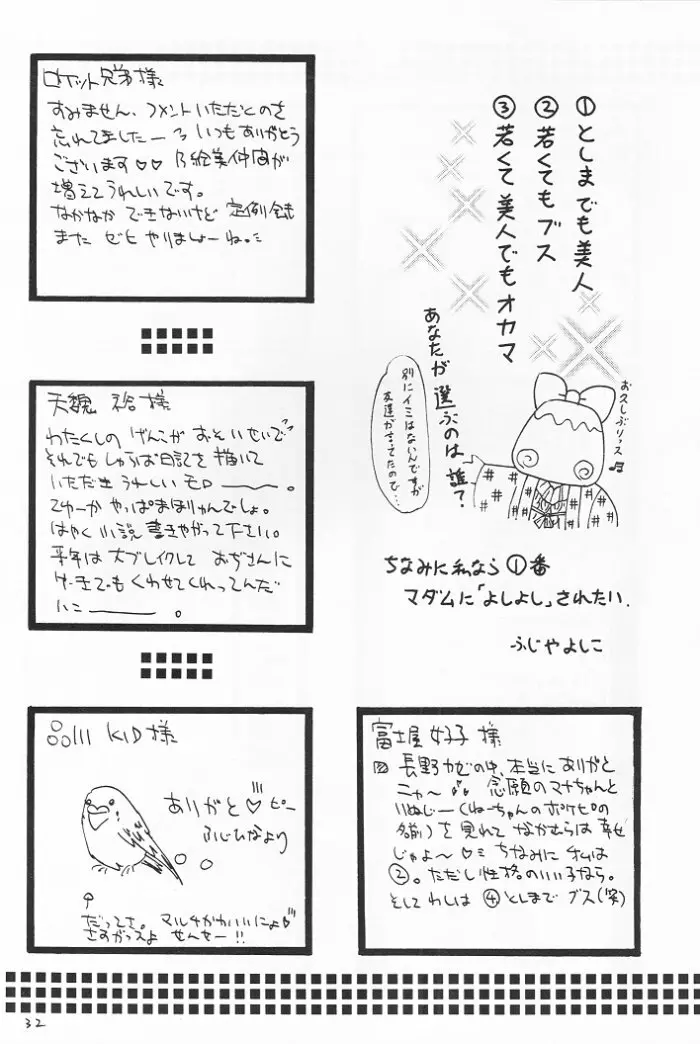 ①としまでも美人
②若くてもブス
③若くて美人でもオカマ
あなたが選ぶのは誰?
別にイミはないんですが
友達がきてたので…
お久しぶりっス♫
ちなみに私なら①番
マダムに「よしよし」されたい.
ふじやよしこ
ロケット兄弟様
すみません、コメントいただくのを
忘れてましたー いつもありがとう
ございます♡♡ 絵美仲間が
増えてうれしいです。
なかなか できないけど 定例会
また ゼヒ やりましょーね。
天魏 裕様
わたくしの げんこが おそいせいで
それでも しゅらば日記を描いて
いただき うれしい モロ――。
てゆーか やっぱ まほりゅんでしょ。
はやく 小説 書きやがって下さい。
来年は 大ブレイクして おぢさんに
ケーキでも くわせてくれってんだ
いこ――。
品川 KID 様
ありがと♡ピー
ふじひなより
だってさ。マルチかわいいにょ♡
さすがっスよ せんせー!!
富士屋 好子 様
長野カゼの中、本当に ありがと
ニャ〜 念願の マナちゃんと
いぬじー(ねーちゃんのポケピの
名前)を 見れて なかむらは 幸せ
じゃよ〜♡ ちなみに オムは
②。ただし性格のいい子なら。
そして わしは ④としまで ブス(笑)
32